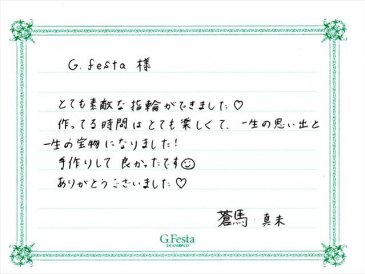 G.festa 様
とても素敵な指輪ができました♡
作ってる時間はとても楽しくて、一生の思い出と
一生の宝物になりました!
手作りして良かったです☺
ありがとうございました♡
蒼馬・真未
G.Festa
DIAMOND